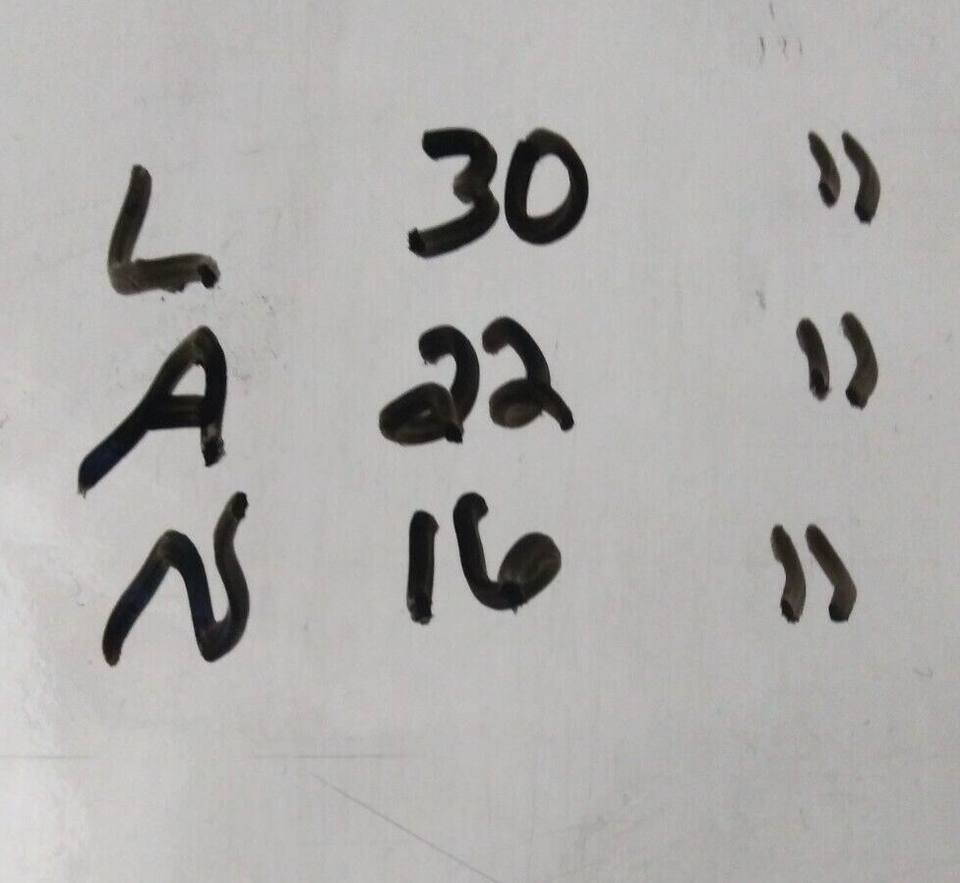 L 30 "
A 22 "
N 16 "